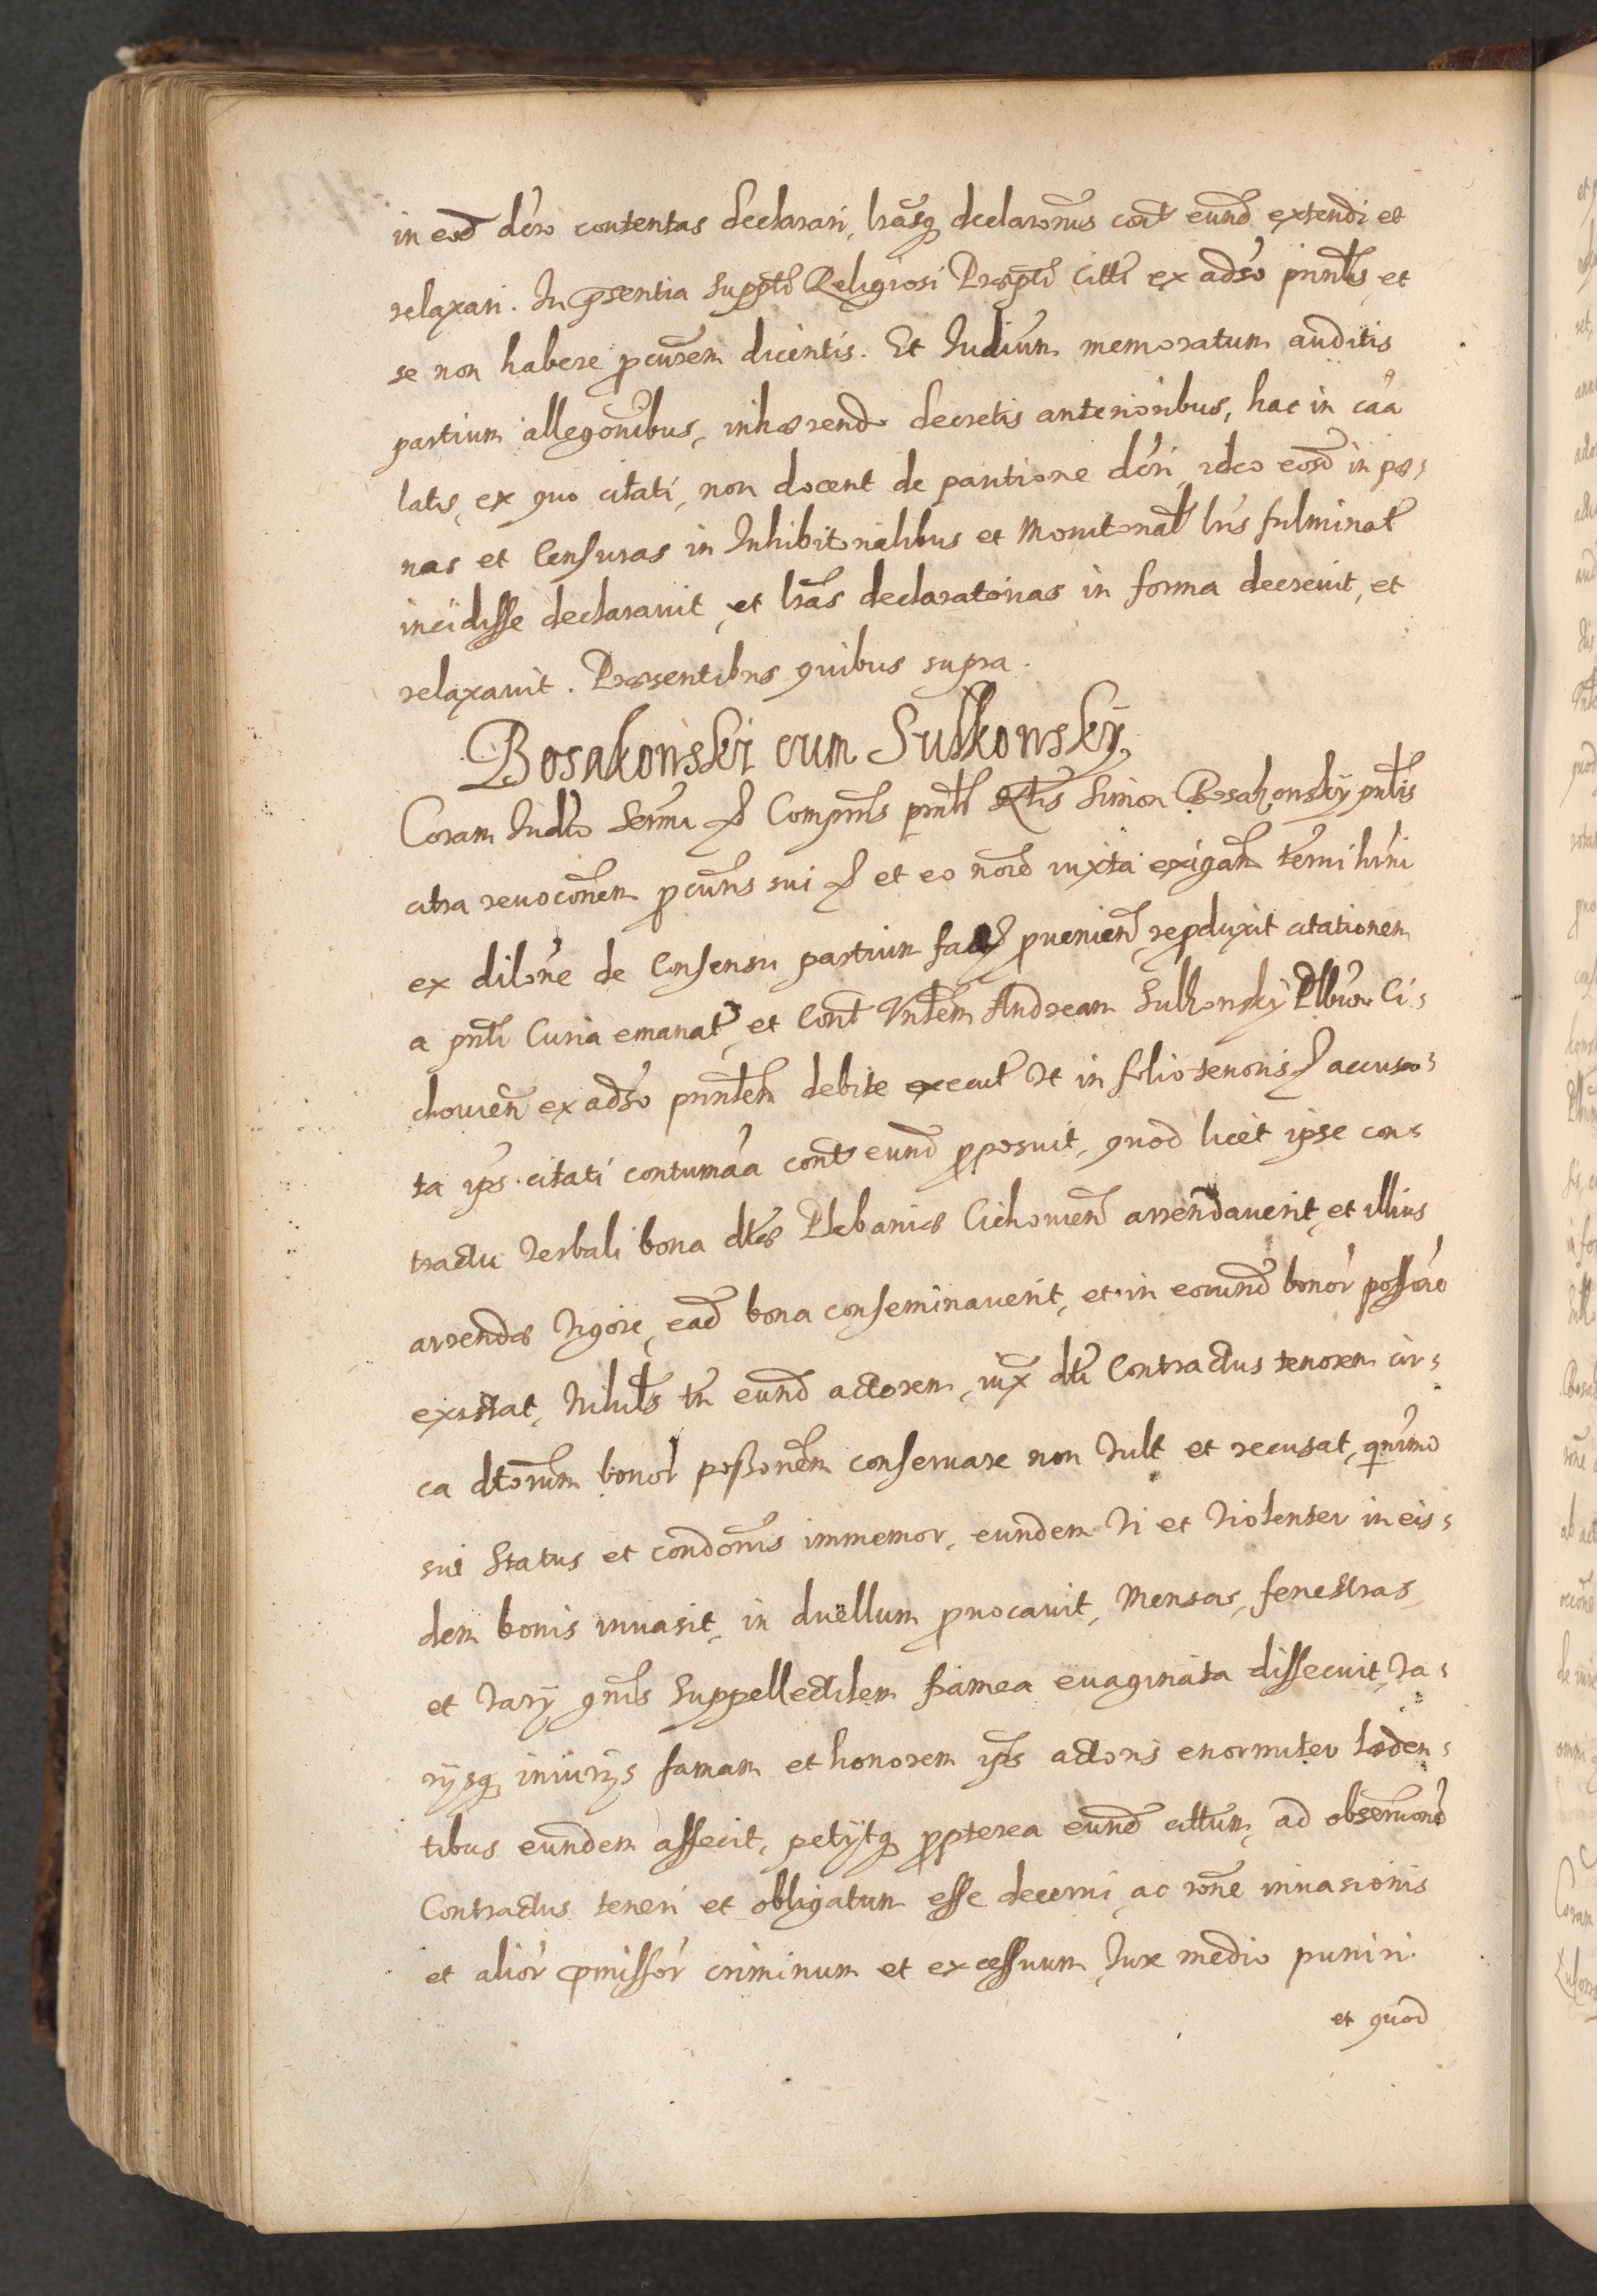 in eod dcro contentas declarari, lrasq declaronis cont eund extendi et
relaxari. In psentia supptd Religiosi Praeptd citti ex adso pnntis et
se non habere pcurem dicentis. Et Iudium memoratum auditis
partium allegonibus, inhaerendo decretis anterioribus, hac in caa
latis, ex quo citati, non docent de paritione dcri, ideo eosd in pae-
nas et Censuras in Inhibitorialibus et Monitorial lris fulminat
incidisse declaravit, et lras declaratorias in forma decrevit, et
relaxavit. Praesentibus quibus supra.
Bosakowski cum Sulkowskÿ
Coram Iudto Comprns prntl Simon Bosakowskÿ pntis
citra revoconem pcuris sui et eo nored iuxta exigan termi hrni
ex dilone de Consensu partium provenien, reproduxit citationem
a pnti Curia emanat, et Cont Vntlem Andream Sulkowskÿ Plbum Ci-
chovien ex adso pnntem debite execut Vt in folio tenoris accusa-
ta ips citati contumaa cont eund pposuit, quod licet ipse con-
tractu Verbali bona dtae Plebaniae Cichovien arrendaverit, et illius
arrendae Vigore, ead bona conseminaverit, et in eorund bonor possore
existat, Nihils tn eund actorem, iux dti Contractus tenorem cir-
ca dtorum bonor possonem conservare non Vult et recusat, qnimo
sui Status et condonis immemor, eundem Vi et Violenter in eis-
dem bonis invasit, in duellum pvocavit, Mensas, fenestras
et Varÿ gnis Suppellectilem framea evaginata dissecuit, Va-
rÿsq iniurÿs famam et honorem ips actoris enormiter laeden-
tibus eundem affecit, petÿtq ppterea eund cittum, ad observaond
Contractus teneri et obligatum esse decerni, ac rone invasionis
et alior pmissor criminum et excessuum Iure medio puniri.
et quod